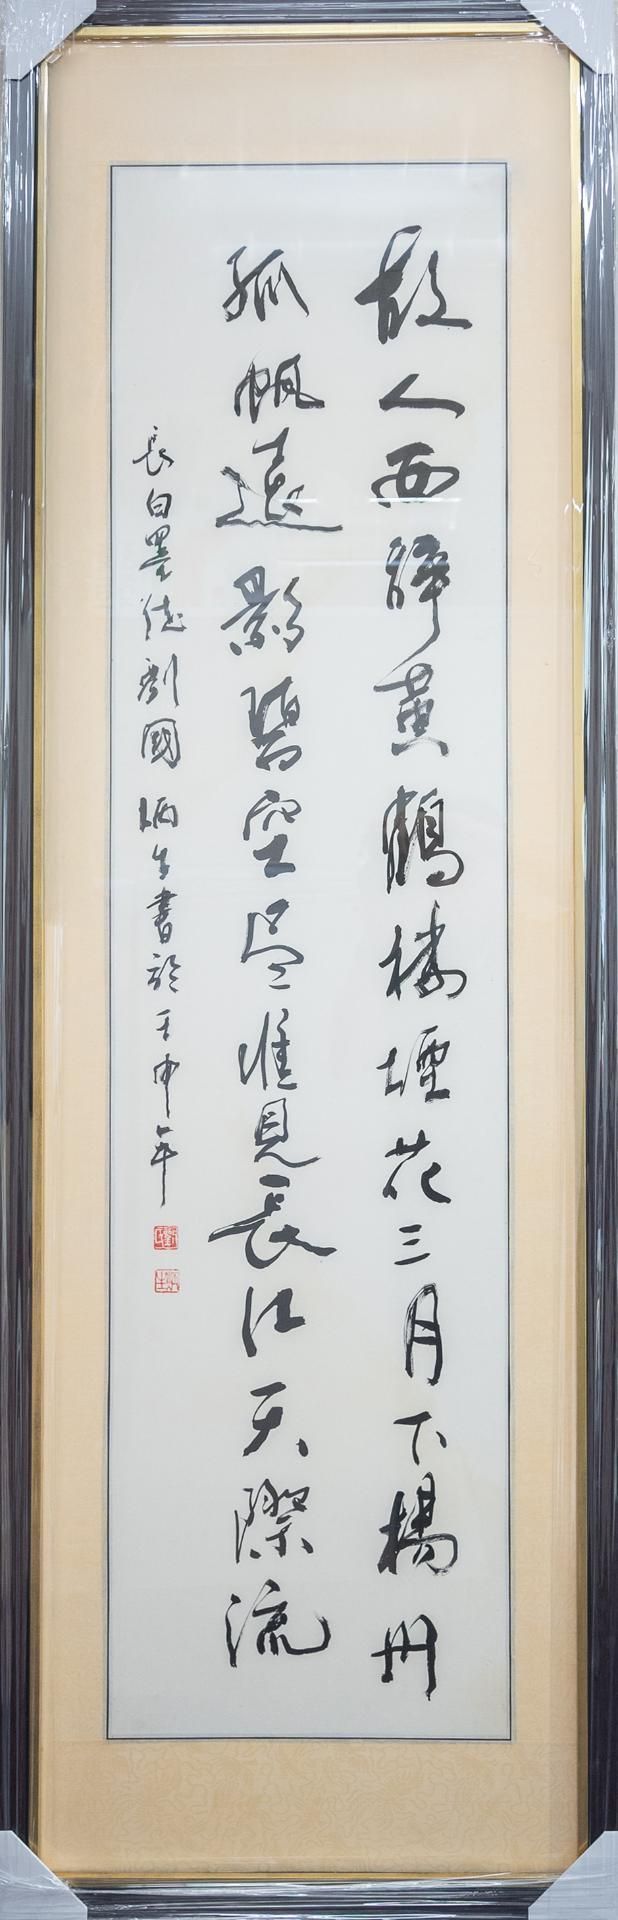 故人西辭黄鶴樓煙花三月下楊州
孤帆遠影碧空尽惟見長江天際流
長白墨德劉國炳生書於壬申年